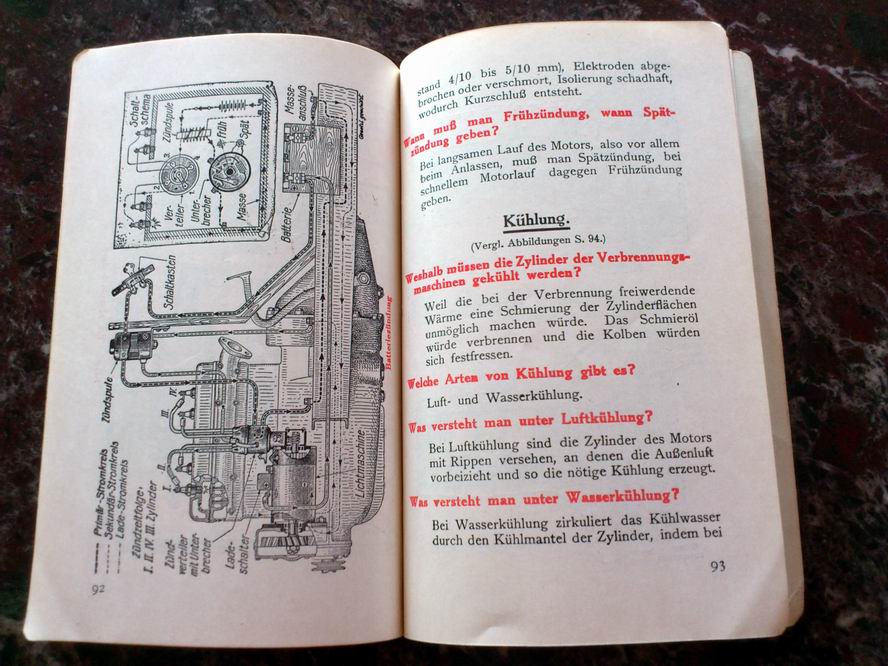 Schalt-
schema
Zündspule
Früh
Spät
Ver-
teiler
Unter-
brecher
Masse
Masse-
anschluß
Batterie
Schaltkasten
Zündspule
I. II. III. IV.
Lichtmaschine
Primär-Stromkreis
Sekundär-Stromkreis
Lade-Stromkreis
Zündzeitfolge:
I. II. IV. III. Zylinder
Zünd-
verteiler
mit Unter-
brecher
Lade-
schalter
Batteriezündung
92
stand 4/10 bis 5/10 mm), Elektroden abge-
brochen oder verschmort, Isolierung schadhaft,
wodurch Kurzschluß entsteht.
Wann muß man Frühzündung, wann Spät-
zündung geben?
Bei langsamen Lauf des Motors, also vor allem
beim Anlassen, muß man Spätzündung, bei
schnellem Motorlauf dagegen Frühzündung
geben.
Kühlung.
(Vergl. Abbildungen S. 94.)
Weshalb müssen die Zylinder der Verbrennungs-
maschinen gekühlt werden?
Weil die bei der Verbrennung freiwerdende
Wärme eine Schmierung der Zylinderflächen
unmöglich machen würde. Das Schmieröl
würde verbrennen und die Kolben würden
sich festfressen.
Welche Arten von Kühlung gibt es?
Luft- und Wasserkühlung.
Was versteht man unter Luftkühlung?
Bei Luftkühlung sind die Zylinder des Motors
mit Rippen versehen, an denen die Außenluft
vorbeizieht und so die nötige Kühlung erzeugt.
Was versteht man unter Wasserkühlung?
Bei Wasserkühlung zirkuliert das Kühlwasser
durch den Kühlmantel der Zylinder, indem bei
93